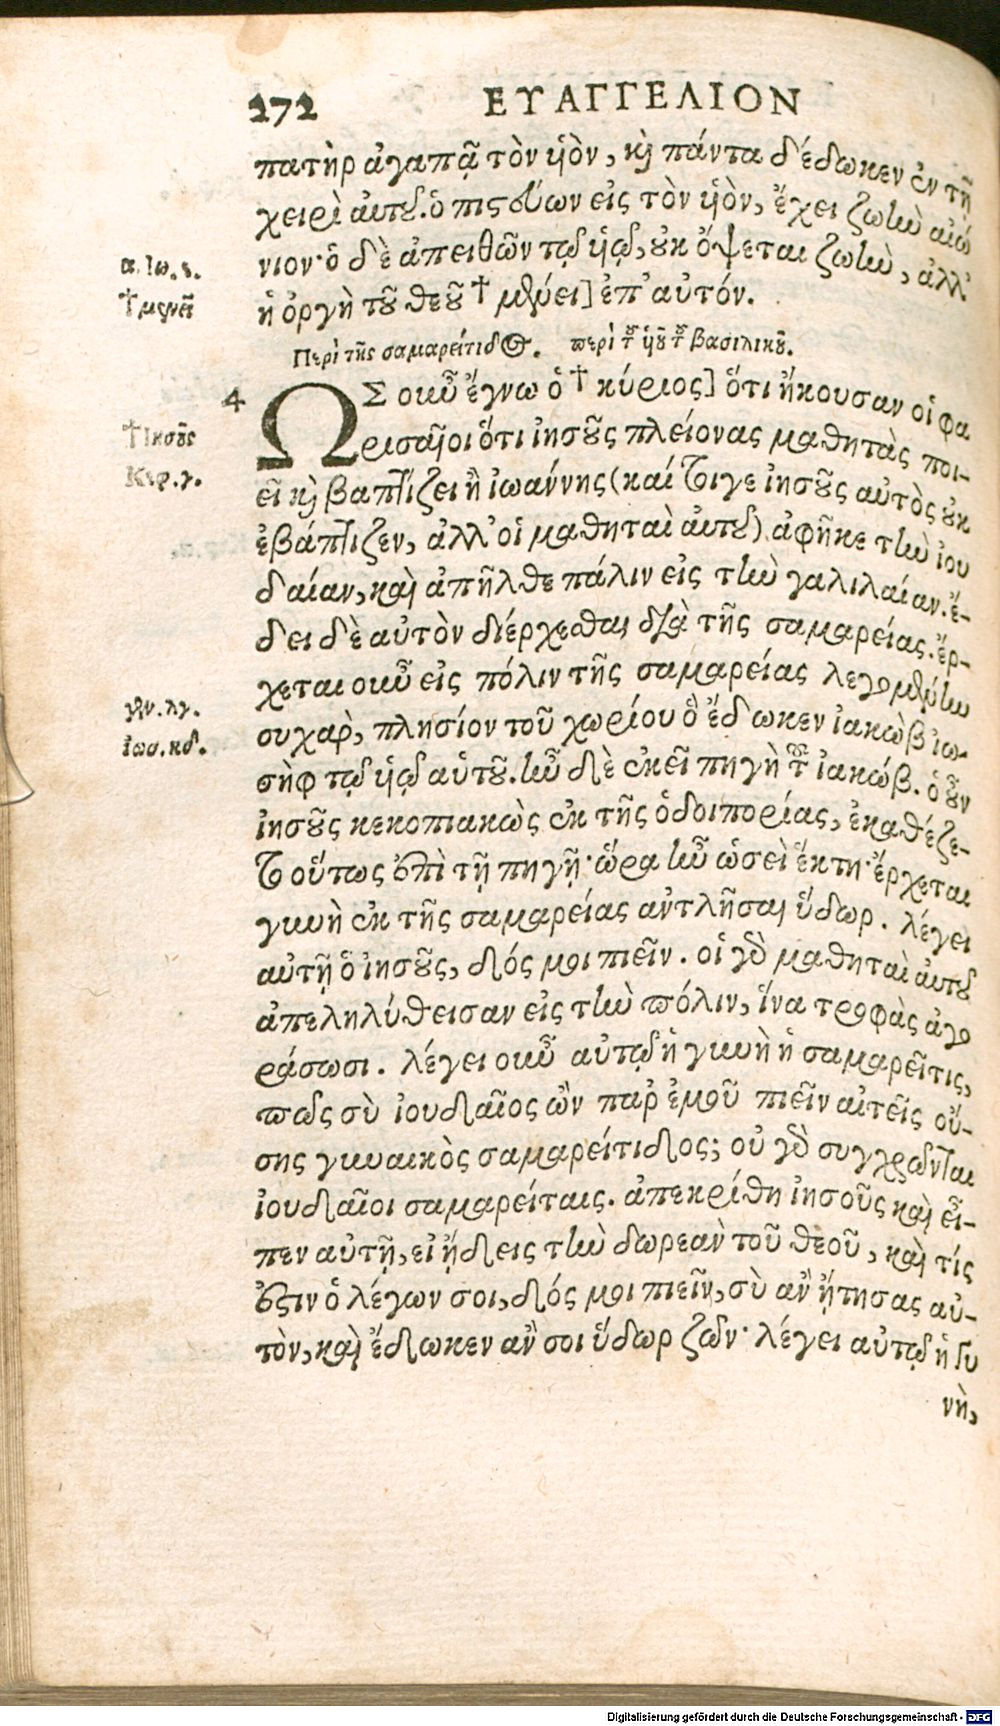 272 ΕΥΑΓΓΕΛΙΟΝ
πατὴρ ἀγαπᾷ τὸν ὑὸν, καὶ πάντα δέδωκεν ἐν τῇ
χειρὶ αὐτοῦ. ὁ πιστεύων εἰς τὸν ὑὸν, ἔχει ζωὴν αἰώ
νιον· ὁ δὲ ἀπειθῶν τῷ ὑῷ, οὐκ ὄψεται ζωὴν, ἀλλ'
α. Ιω. ε.
ἡ ὀργὴ τοῦ θεοῦ † μένει] ἐπ' αὐτόν.
† μενεῖ
Περὶ τῆς σαμαρείτιδος. περὶ τοῦ ὑοῦ τοῦ βασιλικοῦ.
4 ΩΣ οὖν ἔγνω ὁ † κύριος] ὅτι ἤκουσαν οἱ φα
† Ιησοῦς
ρισαῖοι ὅτι ἰησοῦς πλείονας μαθητὰς ποι-
Κεφ. γ.
εῖ καὶ βαπτίζει ἢ ἰωάννης (καί τοιγε ἰησοῦς αὐτὸς οὐκ
ἐβάπτιζεν, ἀλλ' οἱ μαθηταὶ αὐτοῦ) ἀφῆκε τὴν ἰου
δαίαν, καὶ ἀπῆλθε πάλιν εἰς τὴν γαλιλαίαν. ἔ-
δει δὲ αὐτὸν διέρχεσθαι διὰ τῆς σαμαρείας. ἔρ-
χεται οὖν εἰς πόλιν τῆς σαμαρείας λεγομένην
γεν. λγ.
συχαρ, πλησίον τοῦ χωρίου ὃ ἔδωκεν ἰακὼβ ἰω-
ἰωσ. κδ.
σὴφ τῷ ὑῷ αὑτοῦ. ἦν δὲ ἐκεῖ πηγὴ τοῦ ἰακώβ. ὁ οὖν
ἰησοῦς κεκοπιακὼς ἐκ τῆς ὁδοιπορίας, ἐκαθέζε-
το οὕτως ἐπὶ τῇ πηγῇ· ὥρα ἦν ὡσεὶ ἕκτη· ἔρχεται
γυνὴ ἐκ τῆς σαμαρείας ἀντλῆσαι ὕδωρ. λέγει
αὐτῇ ὁ ἰησοῦς, δός μοι πιεῖν. οἱ γὰρ μαθηταὶ αὐτοῦ
ἀπεληλύθεισαν εἰς τὴν πόλιν, ἵνα τροφὰς ἀγο
ράσωσι. λέγει οὖν αὐτῷ ἡ γυνὴ ἡ σαμαρεῖτις,
πῶς σὺ ἰουδαῖος ὢν παρ' ἐμοῦ πιεῖν αἰτεῖς οὔ-
σης γυναικὸς σαμαρείτιδος; οὐ γὰρ συγχρῶνται
ἰουδαῖοι σαμαρείταις. ἀπεκρίθη ἰησοῦς καὶ εἶ-
πεν αὐτῇ, εἰ ᾔδεις τὴν δωρεὰν τοῦ θεοῦ, καὶ τίς
ἐστιν ὁ λέγων σοι, δός μοι πιεῖν, σὺ ἂν ᾔτησας αὐ-
τὸν, καὶ ἔδωκεν ἄν σοι ὕδωρ ζῶν· λέγει αὐτῷ ἡ γυ
νὴ,
Digitalisierung gefördert durch die Deutsche Forschungsgemeinschaft - DFG